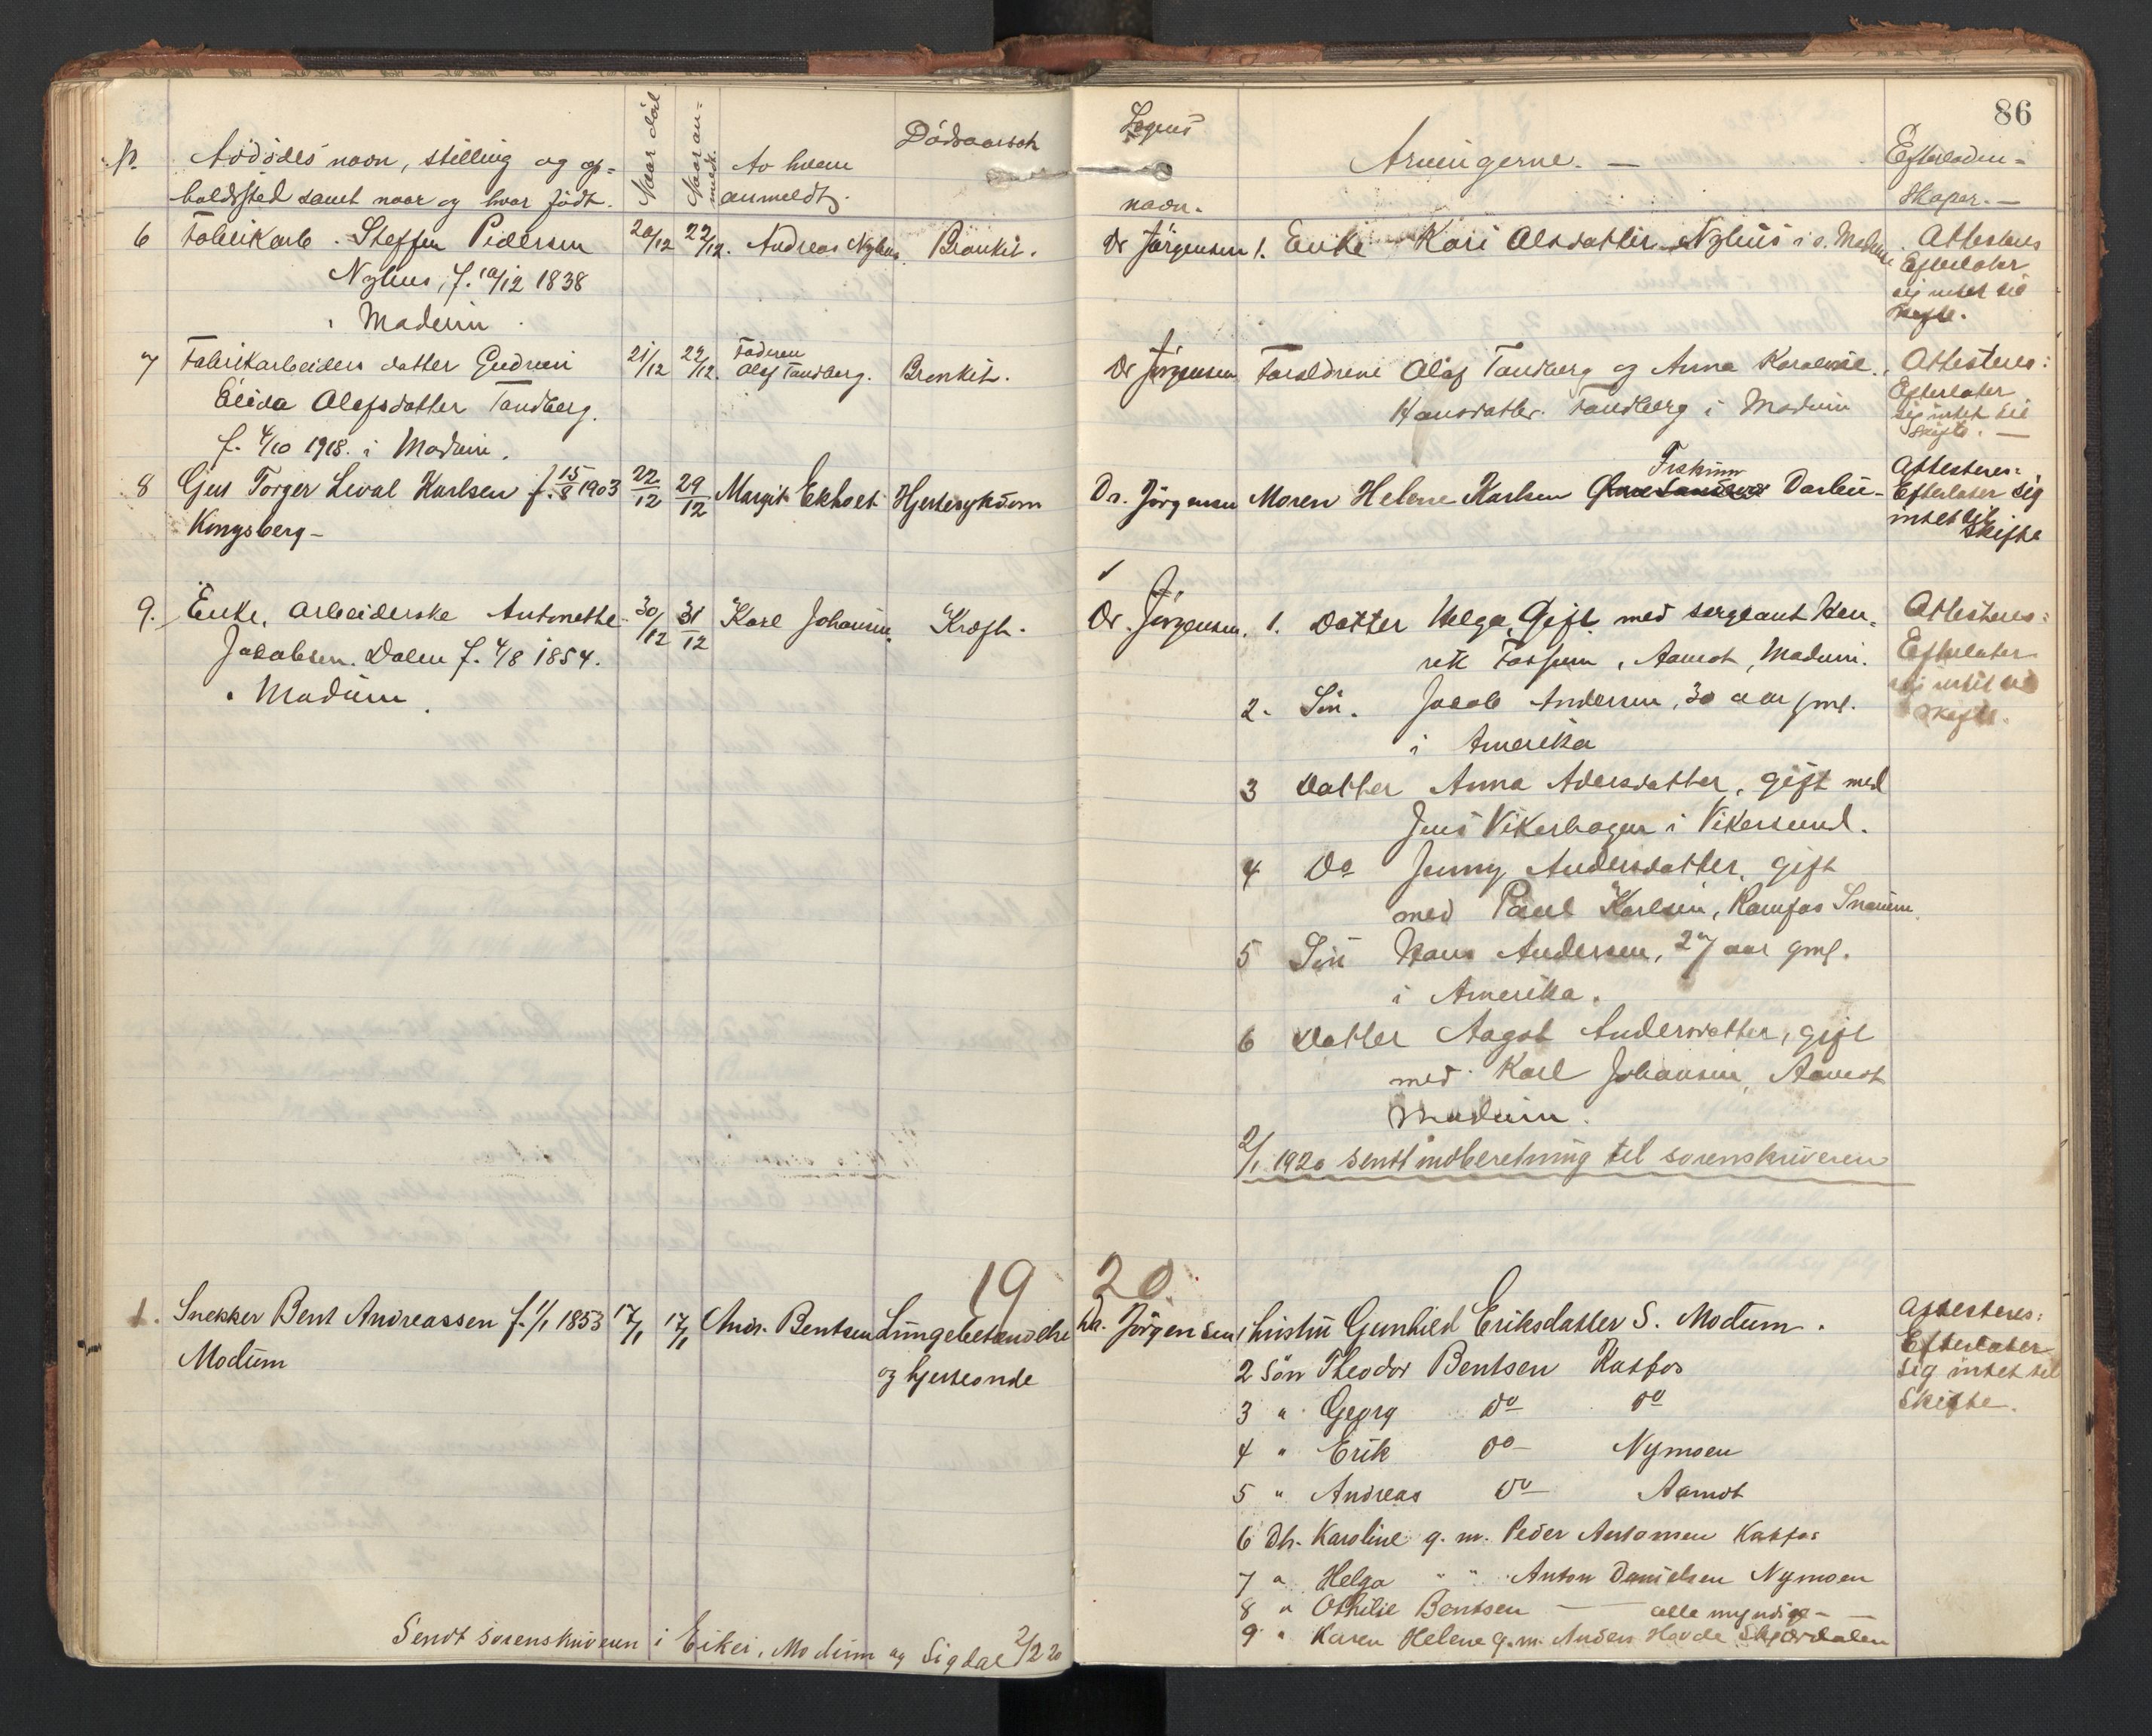 86
No.
Avdödes navn, stilling og op-
holdssted samt naar og hvor födt.
Naar död
Naar an-
meldt.
Av hvem
anmeldt.
Dödsaarsak
Lægens
navn.
Arvingerne. —
Efterladen-
skaper. —
6 Fabrikarb. Steffen Pedersen
Nyhus, f. 10/12 1838
i Modum.
20/12 22/12. Andreas Nyhus. Bronkit.
Dr Jörgensen 1. Enke Kari Olsdatter Nyhus i s. Modum
Attesteres
Efterlater
sig intet til
skifte.
7 Fabrikarbeiders datter Gudrun
Elida Olafsdatter Tandberg.
f. 4/10 1918. i Modum.
21/12 22/12. Faderen
Olaf Tandberg. Bronkit.
Dr Jörgensen Foreldrene Olaf Tandberg og Anna Karoline
Hansdatter Tandberg i Modum
Attesteres:
Efterlater
sig intet til
skifte. —
8 Gut Torger Leval Karlsen f. 15/8 1903
Kongsberg –
22/12 29/12 Margit Ekholt Hjertesykdom
Fiskum
Dr. Jörgensen Moren Helene Karlsen Darbu-
Attesteres:
Efterlater sig
intet til
skifte
9. Enke, arbeiderske Antonette
Jacobsen. Dalen f. 4/8 1854.
i Modum.
30/12 31/12 Karl Johansen. Kræft.
Dr. Jörgensen. 1. Datter Helga, Gift med sergeant Hen-
rik Fossum, Aamot, Modum.
Attesteres:
Efterlater
sig intet til
skifte.
2. Sön. Jacob Andersen, 30 aar gml.
i Amerika
3 Datter Anna Adersdatter, gift med
Jens Vikerhagen i Vikersund.
4 Do Jenny Andersdatter, gift
med Paul Karlsen, Ramfos Snarum
5 Sön Hans Andersen, 27 aar gml.
i Amerika.
6 Datter Aagot Andersdatter, gift
med Karl Johansen, Aamot
Modum.
2/1 1920 sendt indberetning til sorenskriveren
19 20.
1. Snekker Bent Andreassen f. 1/1 1853
Modum
17/1 17/1 Andr. Bentsen Lungebetændelse
og hjerteonde
Dr. Jörgensen 1 hustru Gunhild Eriksdatter S. Modum.
2 Sön Theodor Bentsen Katfos
3 " Georg do do
4 " Erik do Nymoen
5 " Andreas do Aamot
6 Dtr. Karoline g. m. Peder Antonsen Katfos
7 " Helga " " Anton Danielsen Nymoen
8 " Othilie Bentsen — alle myndige —
9 " Karen Helene g. m. Anders Hovde Skjærdalen
Attesteres:
Efterlater
sig intet til
Skifte.
Sendt sorenskriveren i Eiker, Modum og Sigdal 2/2 20